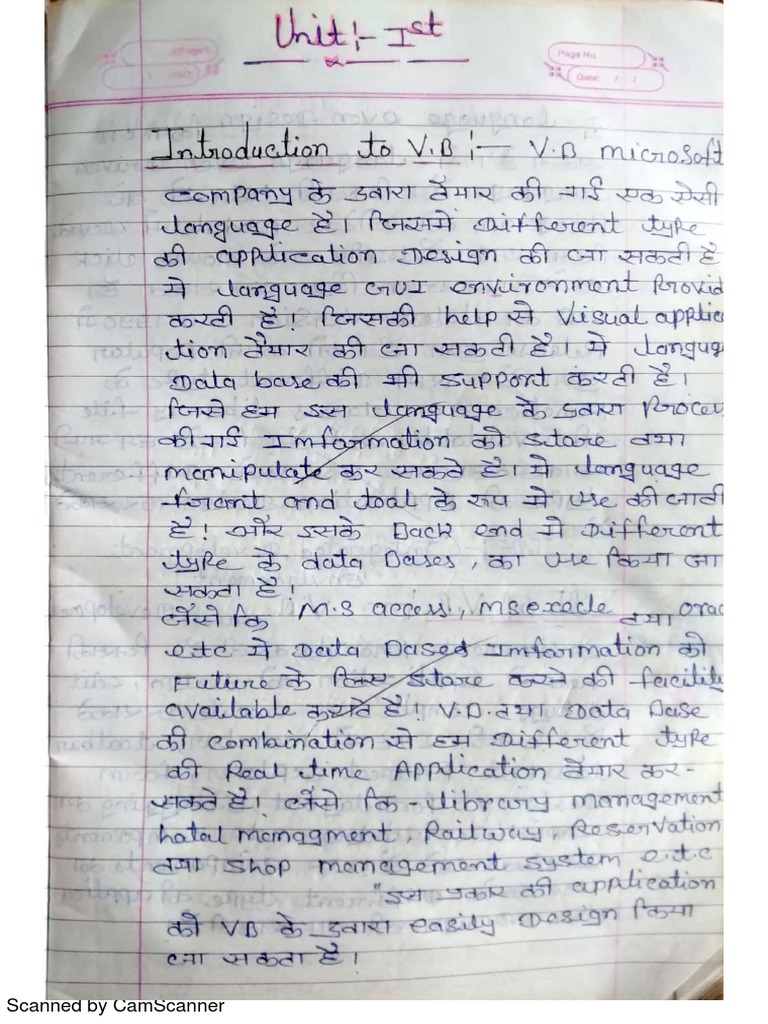 Unit:- Ist
Page No.
Date: / /
Introduction to V.B :- V.B microsoft
Company के डवारा तैयार की गई एक ऐसी
language है। जिसमे Different type
की application Design की जा सकती है
ये language GUI environment Provid
करती है। जिसकी help से Visual applic
tion तैयार की जा सकती है। ये languag
Data base की भी support करती है।
जिसे हम इस language के डवारा Proces
की गई Information को store तथा
manipulate कर सकते है। ये language
front and tool के रूप मे use की जाती
है। और इसके Back end मे Different
type के data Bases, का use किया जा
सकता है।
जैसे कि M.S access, ms execle तथा orac
etc ये Data Based Information को
Future के लिए store करने की facilit
available कराते है। V.B. तथा Data Base
की combination से हम Different type
की Real time Application तैयार कर-
सकते है। जैसे कि - library management
hotal managment, Railway, Reservation
तथा shop management system e.t.c
"इस प्रकार की application
को VB के डवारा easily Design किया
जा सकता है।
Scanned by CamScanner